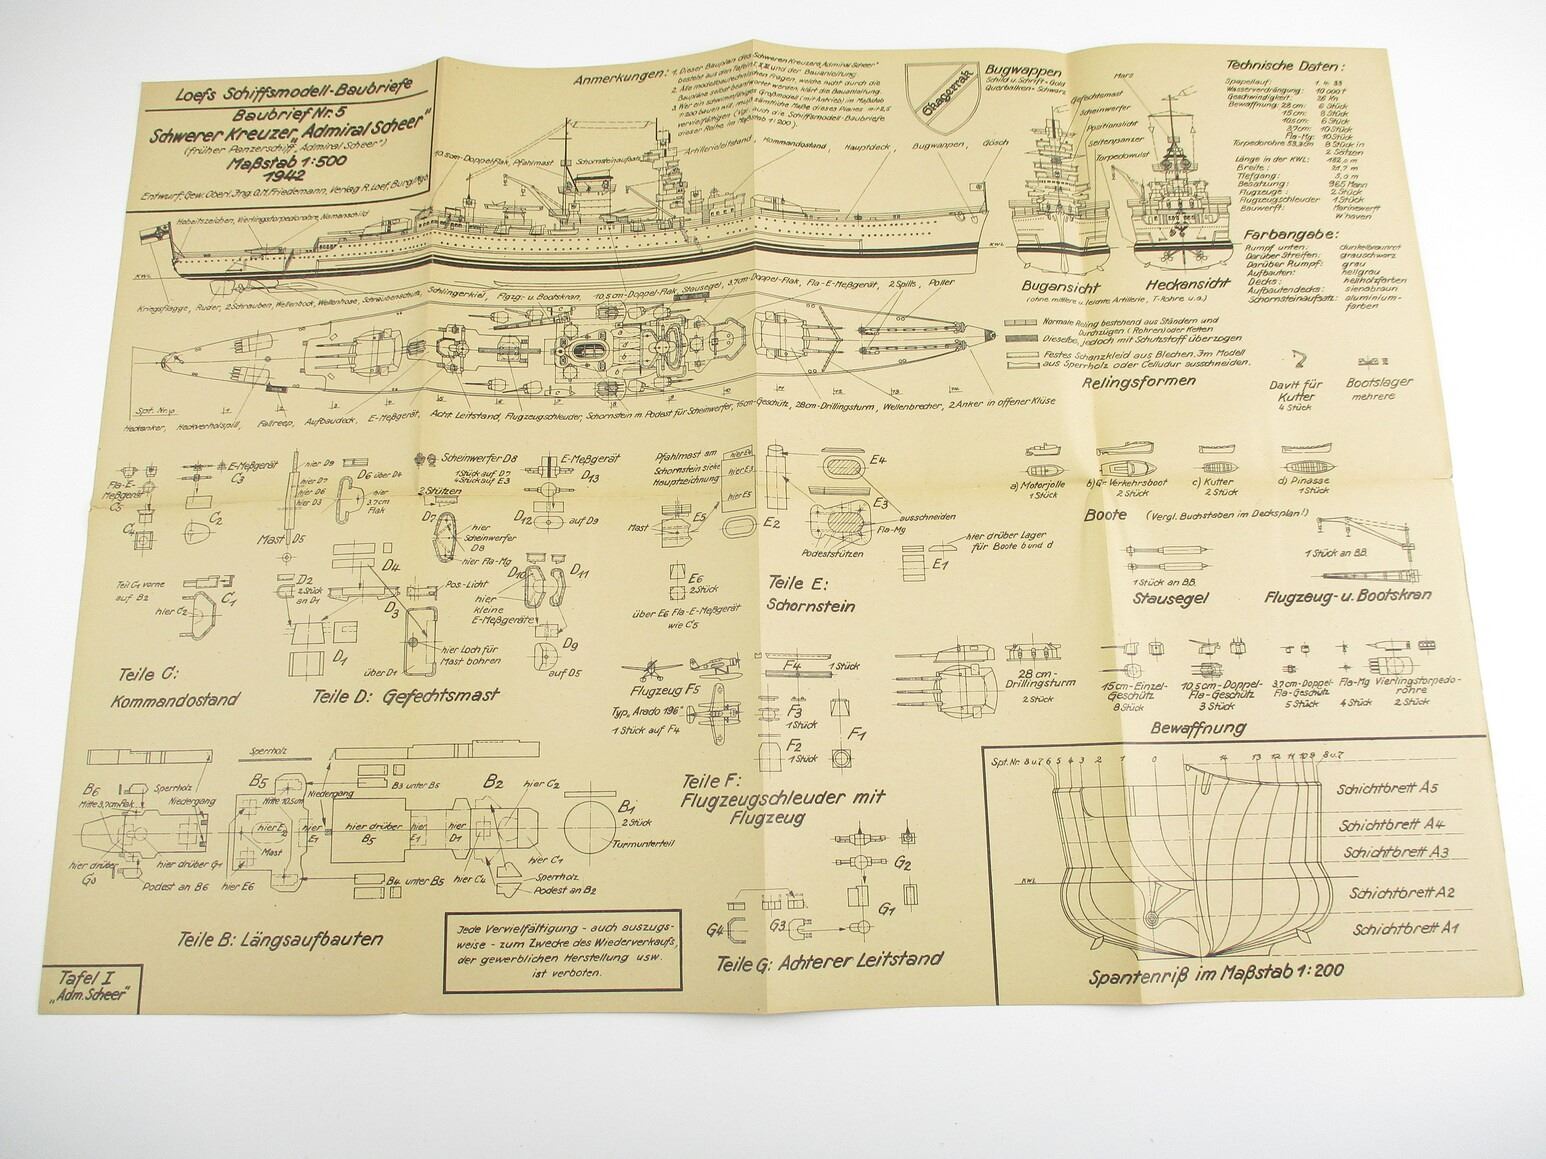 Loefs Schiffsmodell-Baubriefe
Baubrief Nr. 5
Schwerer Kreuzer „Admiral Scheer"
(früher Panzerschiff „Admiral Scheer")
Maßstab 1:500
1942
Entwurf: Gew. Ober. Ing. O.H. Friedemann, Verlag R. Loef, Burg
Anmerkungen: 1. Dieser Bauplan des Schweren Kreuzers „Admiral Scheer"
besteht aus den Tafeln I, II, III und der Bauanleitung.
Bugwappen
Schild u. Schrift = Gold
Querbalken = Schwarz
Skagerrak
Technische Daten:
Stapellauf: 1. 4. 33
Wasserverdrängung: 10000 t
Geschwindigkeit: 26 Kn
Bewaffnung: 28 cm: 6 Stück
15 cm: 8 Stück
10,5 cm: 6 Stück
3,7 cm: 10 Stück
Fla-Mg: 10 Stück
Torpedorohre 53,3 cm: 8 Stück in
2 Sätzen
Länge in der KWL: 182,0 m
Breite: 21,7 m
Tiefgang: 5,0 m
Besatzung: 965 Mann
Flugzeuge: 2 Stück
Flugzeugschleuder 1 Stück
Bauwerft: Marinewerft
W'haven
Farbangabe:
Rumpf unten: dunkelbraunrot
Darüber Streifen: grauschwarz
Darüber Rumpf: grau
Aufbauten: hellgrau
Decks: hellholzfarben
Aufbautendecks: sienabraun
Schornsteinaufsatz: aluminium-
farben
Mars
Gefechtsmast
Scheinwerfer
Positionslicht
Seitenpanzer
Torpedowulst
10,5 cm-Doppelflak, Pfahlmast
Schornsteinaufbau
Artillerieleitstand,
Kommandostand, Hauptdeck, Bugwappen, Gösch
Hoheitszeichen, Vierlingstorpedorohre, Namenschild
KWL
KWL
Bugansicht
Heckansicht
(ohne mittlere u. leichte Artillerie, T-Rohre u.a.)
Kriegsflagge, Ruder, 2 Schrauben, Wellenbock, Wellenhose, Schraubenschutz, Schlingerkiel, Flgzg- u. Bootskran, 10,5 cm-Doppel-Flak, Stausegel, 3,7 cm-Doppel-Flak, Fla-E-Meßgerät, 2 Spills, Poller
Normale Reling bestehend aus Ständern und
Durchzügen (Rohren) oder Ketten
Dieselbe, jedoch mit Schutzstoff überzogen
Festes Schanzkleid aus Blechen. Im Modell
aus Sperrholz oder Celludur ausschneiden.
Relingsformen
Davit für
Kutter
4 Stück
Bootslager
mehrere
Spt. Nr. 0
Heckanker, Heckverholspill, Fallreep, Aufbaudeck, E-Meßgerät, Acht. Leitstand, Flugzeugschleuder, Schornstein m. Podest für Scheinwerfer, 15 cm-Geschütz, 28 cm-Drillingsturm, Wellenbrecher, 2 Anker in offener Klüse
Fla-E-
Meßgerät
C5
C4
E-Meßgerät
C3
C2
Teil C1 vorne
auf B2
hier C2
C1
Teile C:
Kommandostand
hier D9
hier D7
hier D6
hier D3
Mast D5
D6 über D4
hier
3,7 cm
Flak
D4
D2
2 Stück
an D1
D3
D1
über D1
Scheinwerfer D8
1 Stück auf D7
4 Stück auf E3
2 Stützen
D7
hier
Scheinwerfer
D8
hier Fla-Mg
Pos-Licht
hier
kleine
E-Meßgeräte
hier Loch für
Mast bohren
E-Meßgerät
D13
D12
auf D9
D10
D11
D9
auf D5
Teile D: Gefechtsmast
Pfahlmast am
Schornstein siehe
Hauptzeichnung
Mast
E5
hier E4
hier E3
hier E5
E2
E4
E3
ausschneiden
Fla-Mg
Podeststützen
E1
hier drüber Lager
für Boote b und d
E6
über E6 Fla-E-Meßgerät
wie C5
Teile E:
Schornstein
a) Motorjolle
1 Stück
b) G-Verkehrsboot
2 Stück
c) Kutter
2 Stück
d) Pinasse
1 Stück
Boote (Vergl. Buchstaben im Decksplan!)
1 Stück an BB.
Stausegel
1 Stück an BB.
Flugzeug- u. Bootskran
Flugzeug F5
Typ „Arado 196"
1 Stück auf F4
F4
1 Stück
F3
1 Stück
F2
1 Stück
F1
Teile F:
Flugzeugschleuder mit
Flugzeug
28 cm-
Drillingsturm
2 Stück
15 cm-Einzel-
Geschütz
8 Stück
10,5 cm-Doppel-
Fla-Geschütz
3 Stück
3,7 cm-Doppel-
Fla-Geschütz
5 Stück
Fla-Mg
4 Stück
Vierlingstorpedo-
rohre
2 Stück
Bewaffnung
Sperrholz
B6
Mitte 3,7 cm Flak
Sperrholz
Niedergang
hier drüber
G3
hier drüber G1
Podest an B6
B5
Mitte 10,5 cm
hier E2
Mast
hier E6
Niedergang
hier
E1
B3 unter B5
hier drüber
B5
hier
E1
hier
D1
B4 unter B5
B2
hier C2
hier C1
hier C4
Sperrholz
Podest an B2
B1
2 Stück
Turmunterteil
Teile B: Längsaufbauten
Jede Vervielfältigung - auch auszugs-
weise - zum Zwecke des Wiederverkaufs,
der gewerblichen Herstellung usw.
ist verboten.
G2
G1
G4
G3
Teile G: Achterer Leitstand
Spt. Nr. 8 u. 7 6 5 4 3 2 1 0 14 13 12 11 10 9 8 u. 7
KWL
Schichtbrett A5
Schichtbrett A4
Schichtbrett A3
Schichtbrett A2
Schichtbrett A1
Spantenriß im Maßstab 1:200
Tafel I
„Adm. Scheer"